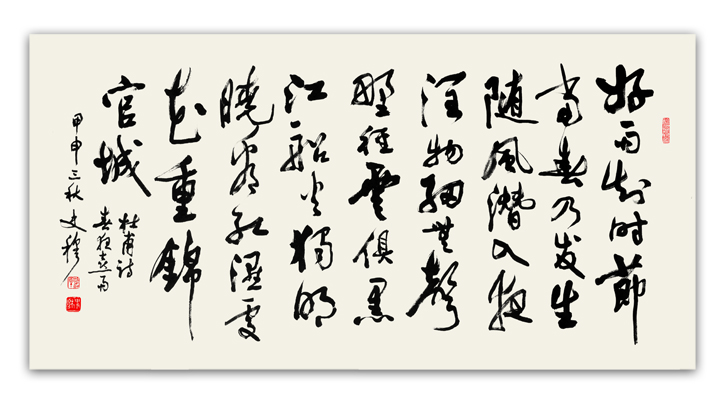 好雨知时節
当春乃发生
随風潛入夜
润物細無聲
野徑雲俱黑
江船火獨明
曉看紅濕處
花重錦
官城
杜甫诗
春夜喜雨
甲申三秋史穆